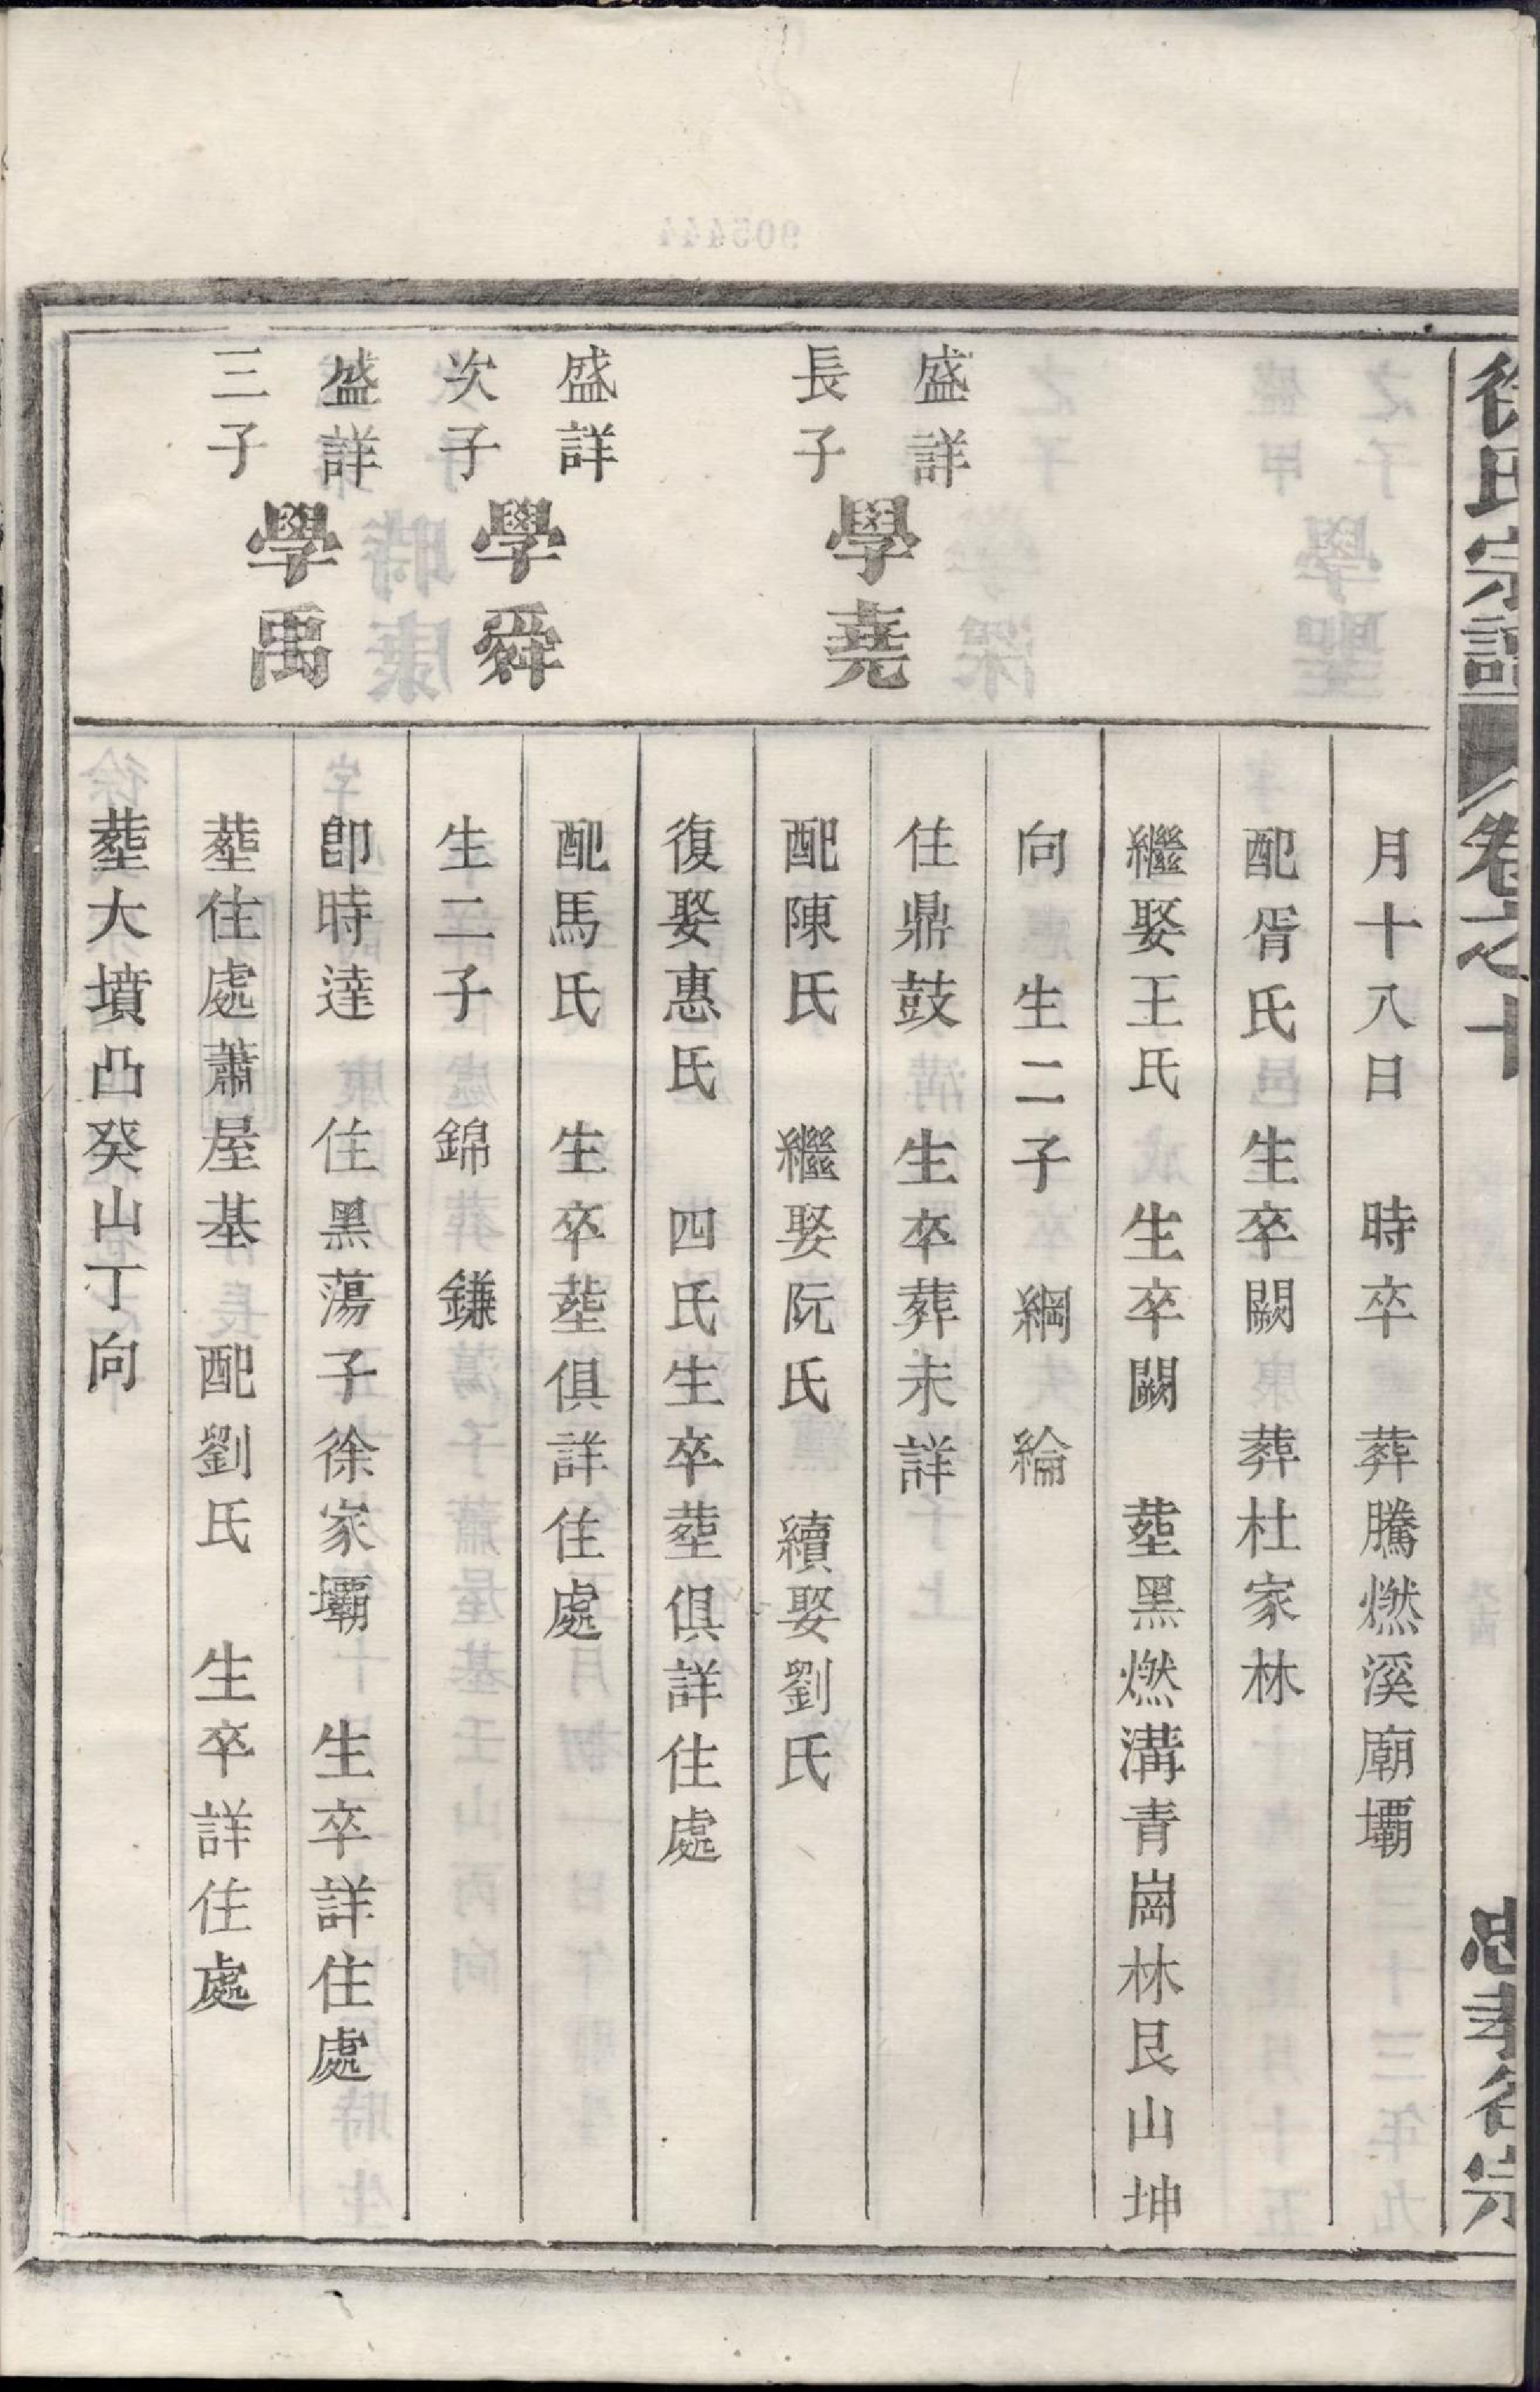 徐氏宗譜 卷之十 忠孝徐宗
月十八日 時卒 葬騰燃溪廟壩
配胥氏 生卒闕 葬杜家林
繼娶王氏 生卒闕 塟黑燃溝青崗林艮山坤
向 生二子 綱 綸
盛詳
長子
學堯
住鼎鼓 生卒葬未詳
配陳氏 繼娶阮氏 續娶劉氏
復娶惠氏 四氏生卒塟俱詳住處
盛詳
次子
學舜
配馬氏 生卒塟俱詳住處
生二子 錦 鎌
盛詳
三子
學禹
卽時達 住黑蕩子徐家壩 生卒詳住處
塟住處蕭屋基 配劉氏 生卒詳住處
塟大墳凸癸山丁向